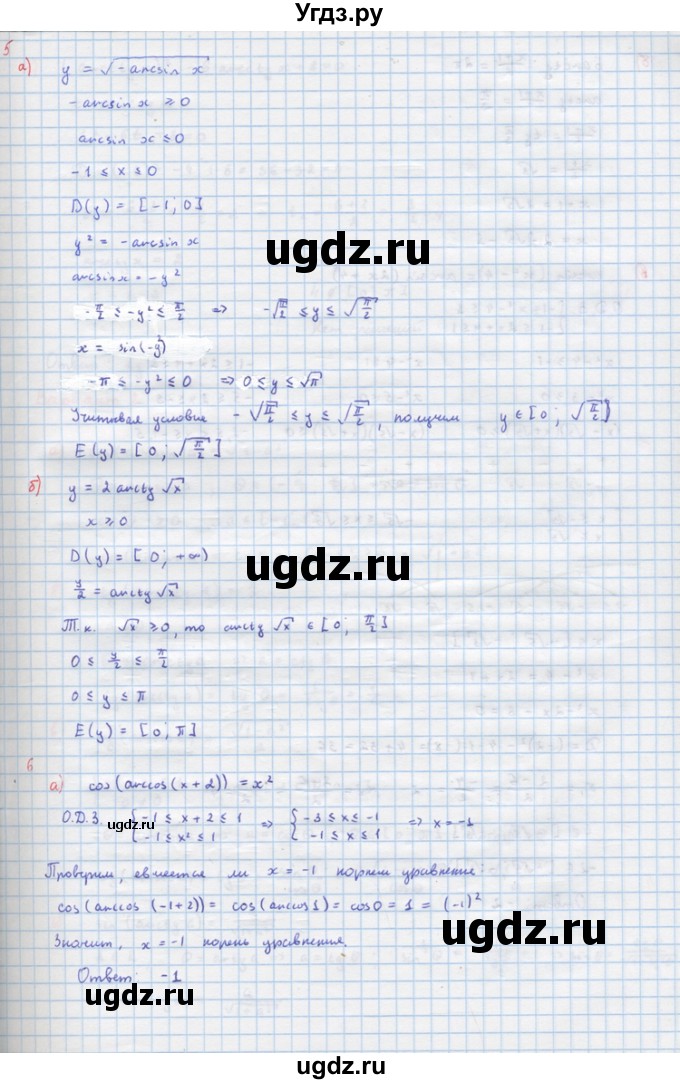 Угдз.ру
5
а) y = √-arcsin x
-arcsin x ≥ 0
arcsin x ≤ 0
-1 ≤ x ≤ 0
D(y) = [-1; 0]
y² = -arcsin x
ugdz.ru
arcsin x = -y²
-π/2 ≤ -y² ≤ π/2 ⇒ -√π/2 ≤ y ≤ √π/2
x = sin(-y²)
-π ≤ -y² ≤ 0 ⇒ 0 ≤ y ≤ √π
Учитывая условие -√π/2 ≤ y ≤ √π/2, получим y ∈ [0; √π/2]
E(y) = [0; √π/2]
б) y = 2 arctg √x
x ≥ 0
D(y) = [0; +∞)
ugdz.ru
y/2 = arctg √x
Т.к. √x ≥ 0, то arctg √x ∈ [0; π/2]
0 ≤ y/2 ≤ π/2
0 ≤ y ≤ π
E(y) = [0; π]
6
а) cos(arccos(x+2)) = x²
О.Д.З. {-1 ≤ x+2 ≤ 1 ⇒ {-3 ≤ x ≤ -1 ⇒ x = -1
ugdz.ru
-1 ≤ x² ≤ 1 -1 ≤ x ≤ 1
Проверим, является ли x = -1 корнем уравнения:
cos(arccos(-1+2)) = cos(arccos 1) = cos 0 = 1 = (-1)²
Значит, x = -1 корень уравнения.
ugdz.ru
Ответ: -1
ugdz.ru
ugdz.ru